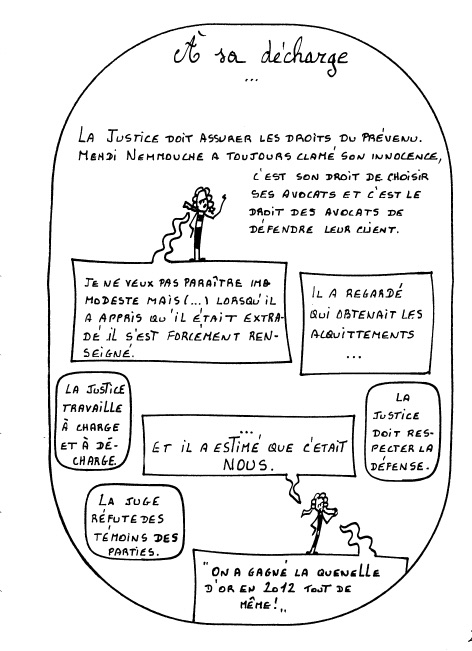 À sa décharge
...
LA JUSTICE DOIT ASSURER LES DROITS DU PRÉVENU.
MEHDI NEMMOUCHE A TOUJOURS CLAMÉ SON INNOCENCE,
C'EST SON DROIT DE CHOISIR
SES AVOCATS ET C'EST LE
DROIT DES AVOCATS DE
DÉFENDRE LEUR CLIENT.
JE NE VEUX PAS PARAÎTRE IMM
MODESTE MAIS (...) LORSQU'IL
A APPRIS QU'IL ÉTAIT EXTRA-
DÉ IL S'EST FORCÉMENT REN-
SEIGNÉ.
IL A REGARDÉ
QUI OBTENAIT LES
ACQUITTEMENTS
...
LA JUSTICE
TRAVAILLE
À CHARGE
ET À DÉ-
CHARGE.
LA
JUSTICE
DOIT RES-
PECTER LA
DÉFENSE.
...
ET IL A ESTIMÉ QUE C'ÉTAIT
NOUS.
LA JUGE
RÉFUTE DES
TÉMOINS DES
PARTIES.
"ON A GAGNÉ LA QUENELLE
D'OR EN 2012 TOUT DE
MÊME!„